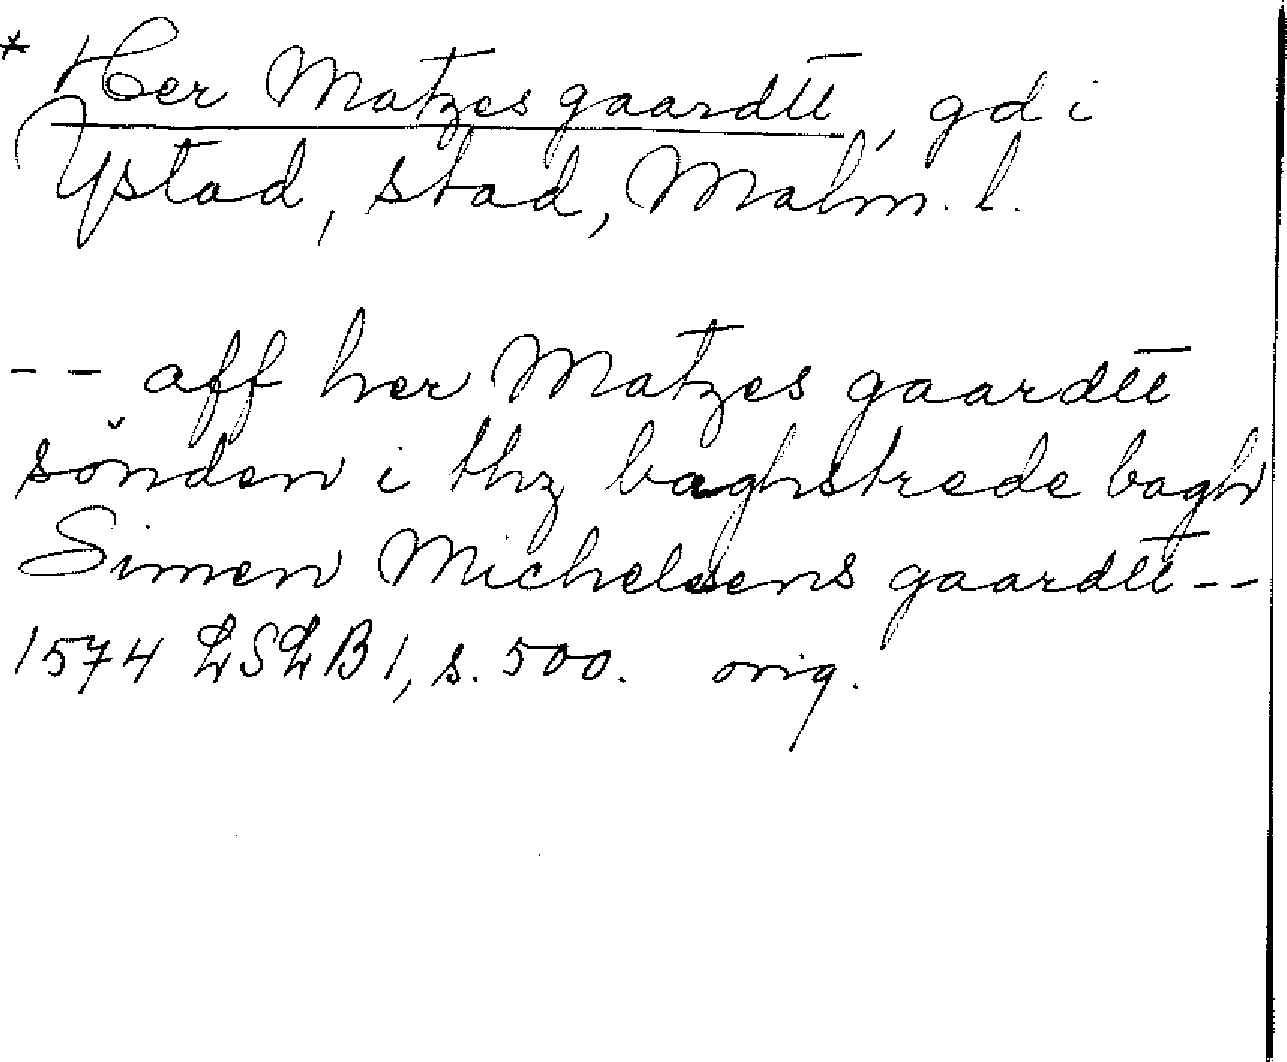 * Her Matzes gaardtt, gd i
Ystad, stad, Malm. l.
-- aff her Matzes gaardtt
sönden i thz baghstrede bagh
Simen Michelsens gaardtt--
1574 LSLB 1, s. 500. orig.